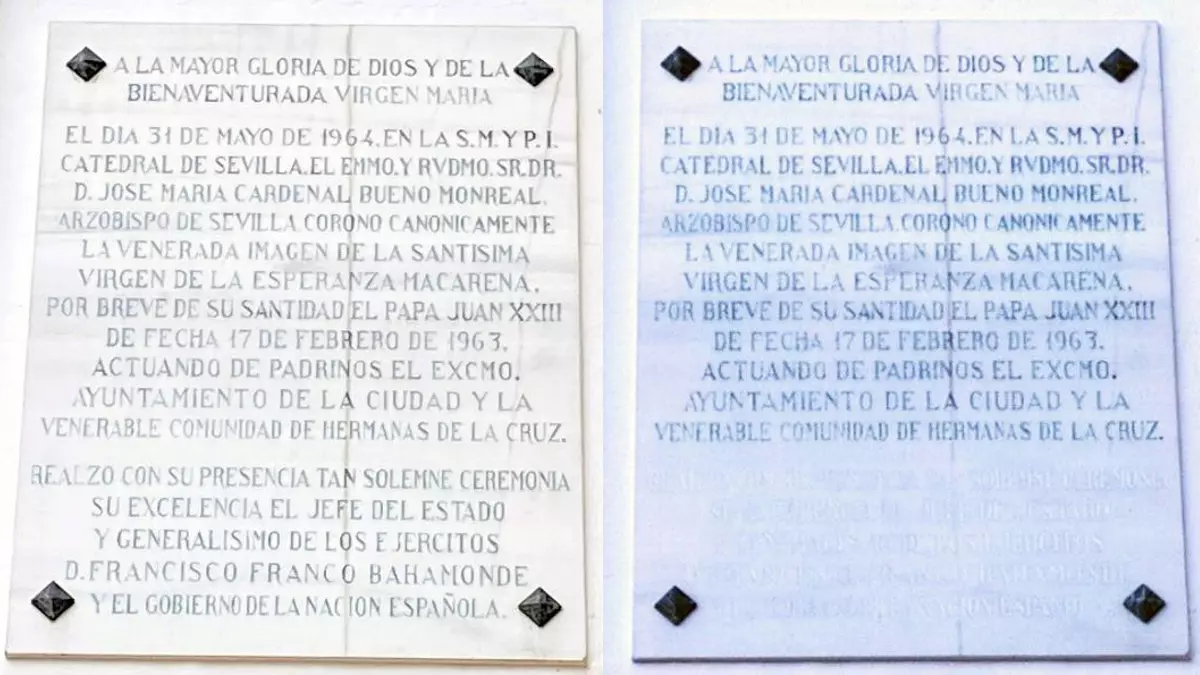 A LA MAYOR GLORIA DE DIOS Y DE LA
BIENAVENTURADA VIRGEN MARIA
EL DIA 31 DE MAYO DE 1964. EN LA S.M.Y P.I.
CATEDRAL DE SEVILLA. EL EMMO. Y RVDMO. SR. DR.
D. JOSE MARIA CARDENAL BUENO MONREAL,
ARZOBISPO DE SEVILLA CORONO CANONICAMENTE
LA VENERADA IMAGEN DE LA SANTISIMA
VIRGEN DE LA ESPERANZA MACARENA,
POR BREVE DE SU SANTIDAD EL PAPA JUAN XXIII
DE FECHA 17 DE FEBRERO DE 1963.
ACTUANDO DE PADRINOS EL EXCMO.
AYUNTAMIENTO DE LA CIUDAD Y LA
VENERABLE COMUNIDAD DE HERMANAS DE LA CRUZ.
REALZO CON SU PRESENCIA TAN SOLEMNE CEREMONIA
SU EXCELENCIA EL JEFE DEL ESTADO
Y GENERALISIMO DE LOS EJERCITOS
D. FRANCISCO FRANCO BAHAMONDE
Y EL GOBIERNO DE LA NACION ESPAÑOLA.
A LA MAYOR GLORIA DE DIOS Y DE LA
BIENAVENTURADA VIRGEN MARIA
EL DIA 31 DE MAYO DE 1964. EN LA S.M.Y P.I.
CATEDRAL DE SEVILLA. EL EMMO. Y RVDMO. SR. DR.
D. JOSE MARIA CARDENAL BUENO MONREAL,
ARZOBISPO DE SEVILLA CORONO CANONICAMENTE
LA VENERADA IMAGEN DE LA SANTISIMA
VIRGEN DE LA ESPERANZA MACARENA,
POR BREVE DE SU SANTIDAD EL PAPA JUAN XXIII
DE FECHA 17 DE FEBRERO DE 1963.
ACTUANDO DE PADRINOS EL EXCMO.
AYUNTAMIENTO DE LA CIUDAD Y LA
VENERABLE COMUNIDAD DE HERMANAS DE LA CRUZ.
SOLEMNE CEREMONIA
ESTADO
EJERCITOS
NACION